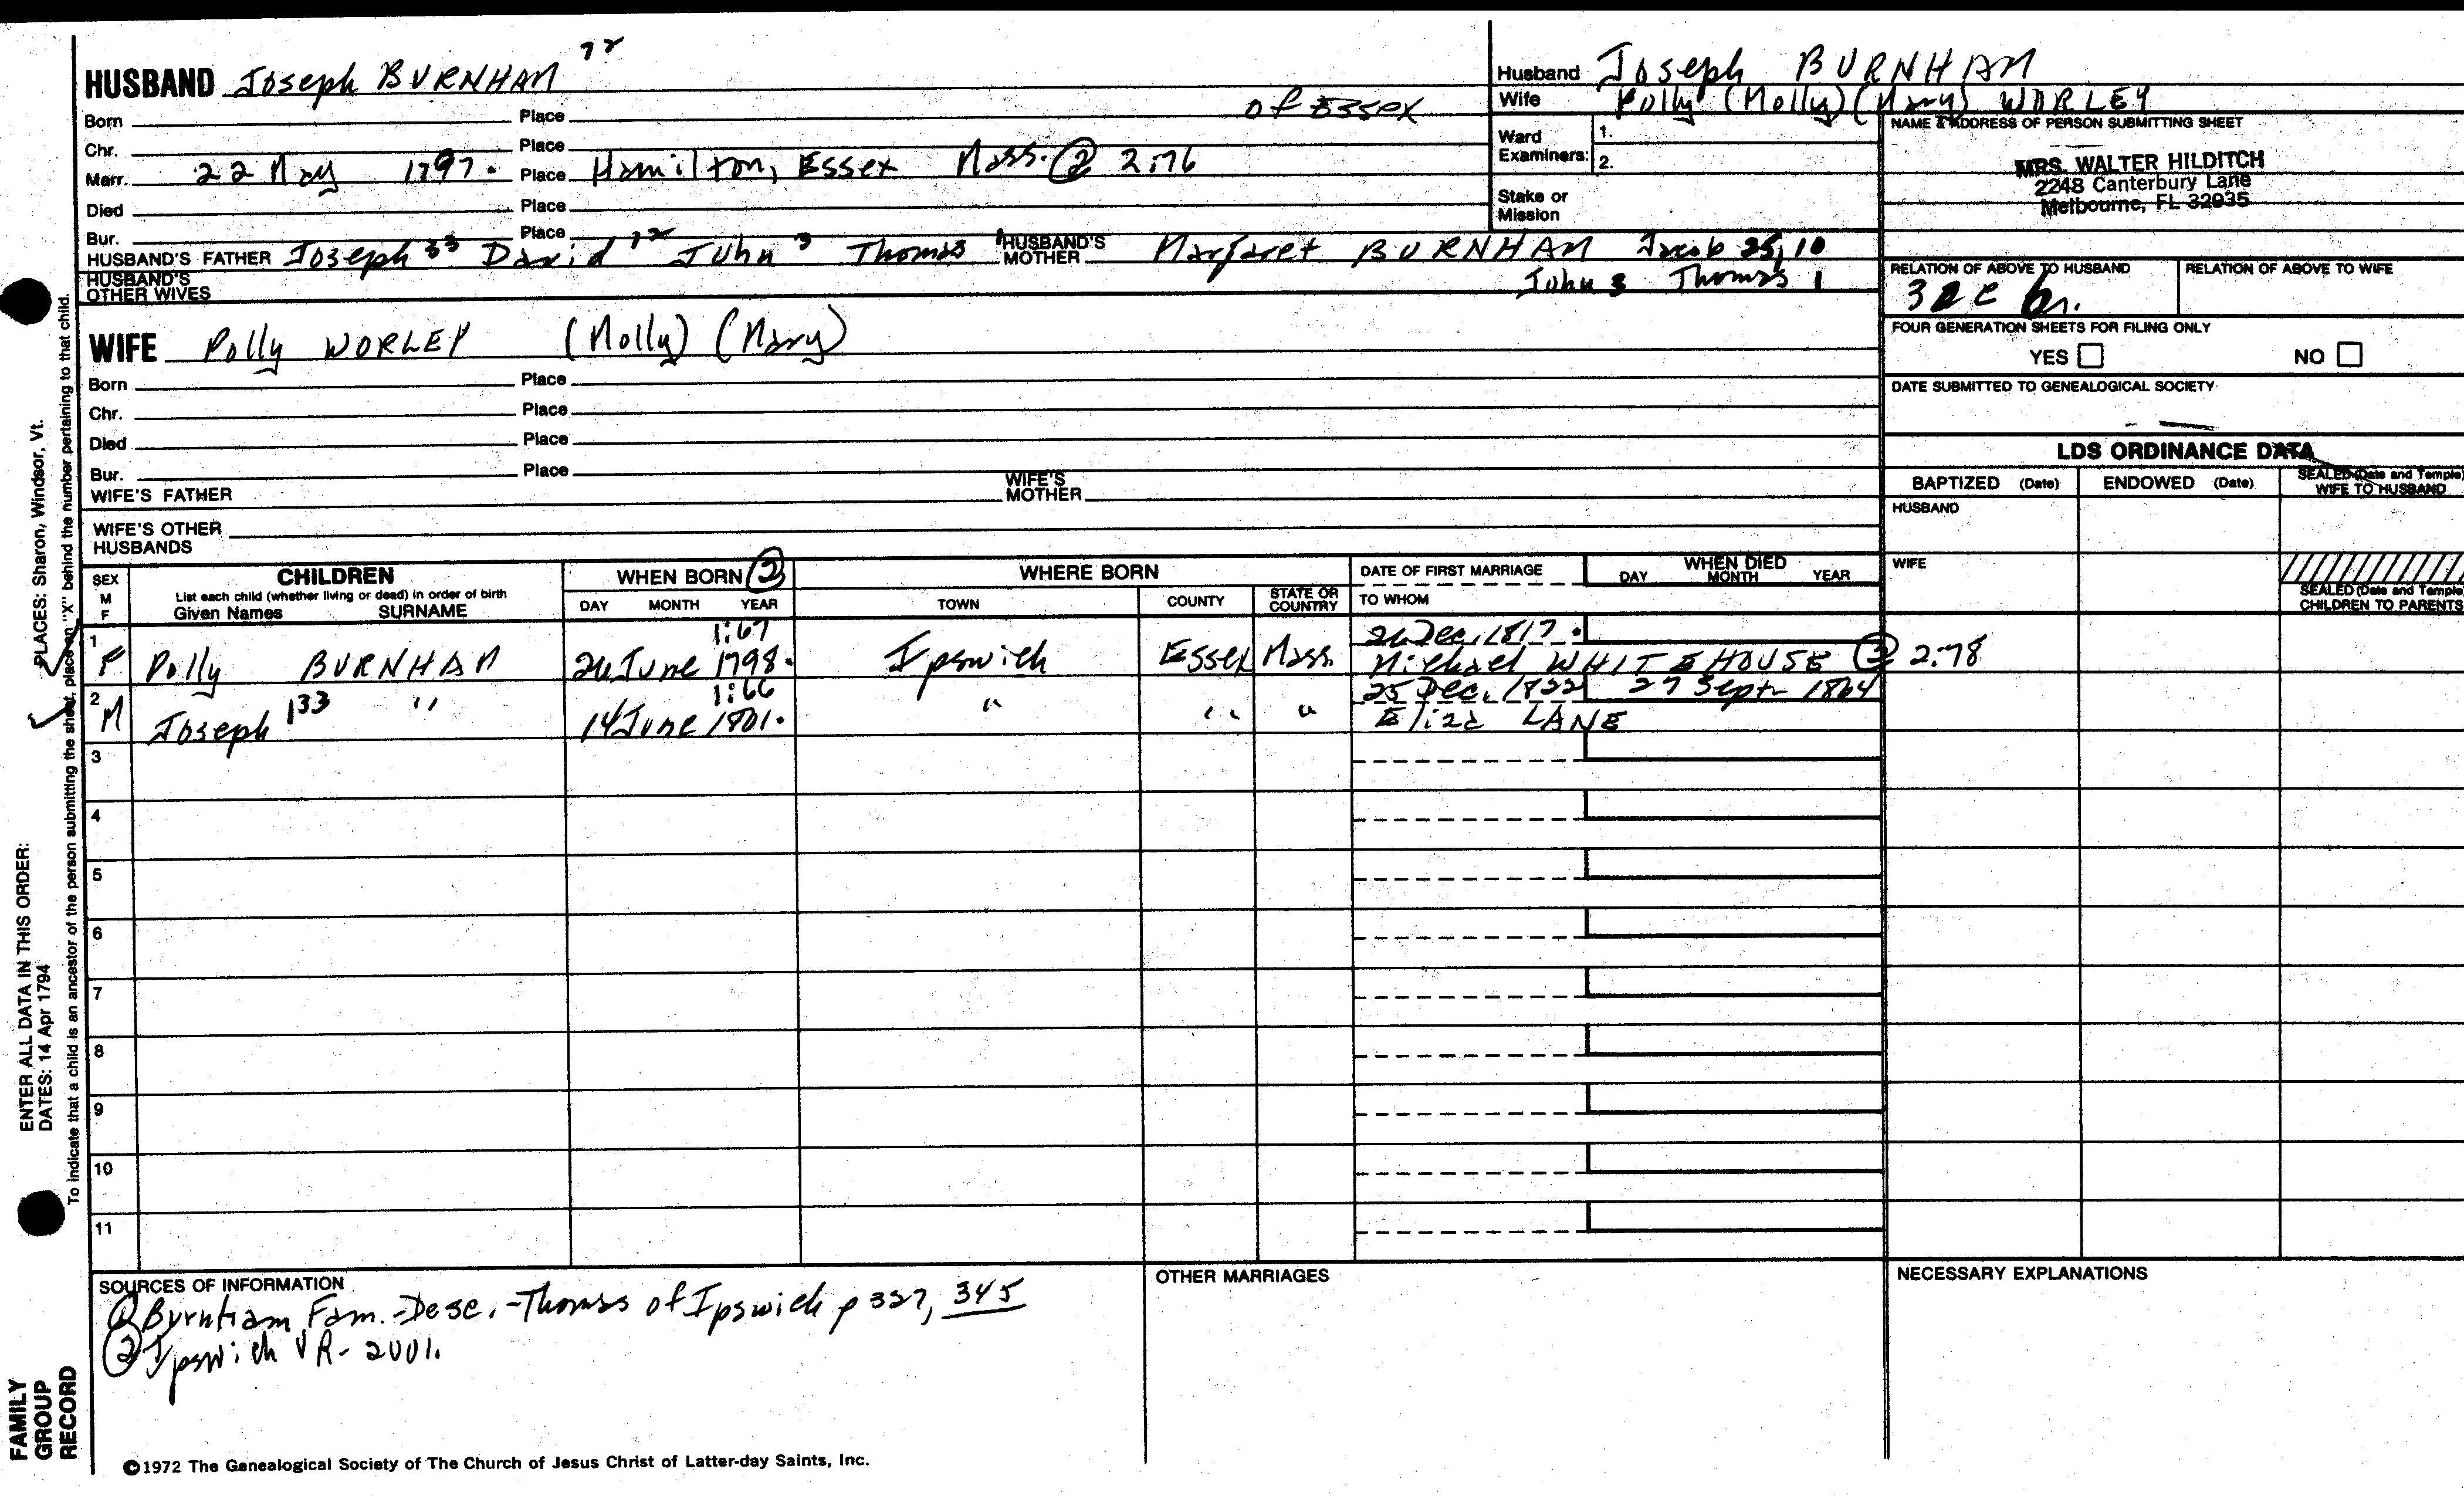 HUSBAND Joseph BURNHAM 72
of Essex
Born Place
Chr. Place
Marr. 22 May 1797. Place Hamilton, Essex Mass. ② 2:76
Died Place
Bur. Place
HUSBAND'S FATHER Joseph 33 David 12 John 3 Thomas 1 HUSBAND'S MOTHER Margaret BURNHAM Jacob 25, 10
John 3 Thomas 1
HUSBAND'S OTHER WIVES
WIFE Polly WORLEY (Molly) (Mary)
Born Place
Chr. Place
Died Place
Bur. Place
WIFE'S FATHER WIFE'S MOTHER
WIFE'S OTHER HUSBANDS
Husband Joseph BURNHAM
Wife Polly (Molly) (Mary) WORLEY
Ward Examiners: 1.
2.
Stake or Mission
NAME & ADDRESS OF PERSON SUBMITTING SHEET
MRS. WALTER HILDITCH
2248 Canterbury Lane
Melbourne, FL 32935
RELATION OF ABOVE TO HUSBAND RELATION OF ABOVE TO WIFE
FOUR GENERATION SHEETS FOR FILING ONLY
YES NO
DATE SUBMITTED TO GENEALOGICAL SOCIETY
LDS ORDINANCE DATA
BAPTIZED (Date) ENDOWED (Date) SEALED (Date and Temple) WIFE TO HUSBAND
HUSBAND
WIFE
SEALED (Date and Temple) CHILDREN TO PARENTS
SEX M F
CHILDREN
List each child (whether living or dead) in order of birth
Given Names SURNAME
WHEN BORN ②
DAY MONTH YEAR
WHERE BORN
TOWN COUNTY STATE OR COUNTRY
DATE OF FIRST MARRIAGE
TO WHOM
WHEN DIED
DAY MONTH YEAR
1:67 26 Dec. 1817.
1 F Polly BURNHAM 26 June 1798. Ipswich Essex Mass. Michael WHITEHOUSE ② 2:78
1:66 25 Dec. 1822 27 Sept 1864
2 M Joseph 133 " 14 June 1801. " " " Eliza LANE
3
4
5
6
7
8
9
10
11
SOURCES OF INFORMATION
① Burnham Fam. - Desc. - Thomas of Ipswich p 327, 345
② Ipswich VR - 2001.
OTHER MARRIAGES
NECESSARY EXPLANATIONS
©1972 The Genealogical Society of The Church of Jesus Christ of Latter-day Saints, Inc.
FAMILY GROUP RECORD
ENTER ALL DATA IN THIS ORDER:
DATES: 14 Apr 1794
PLACES: Sharon, Windsor, Vt.
To indicate that a child is an ancestor of the person submitting the sheet, place an "X" behind the number pertaining to that child.